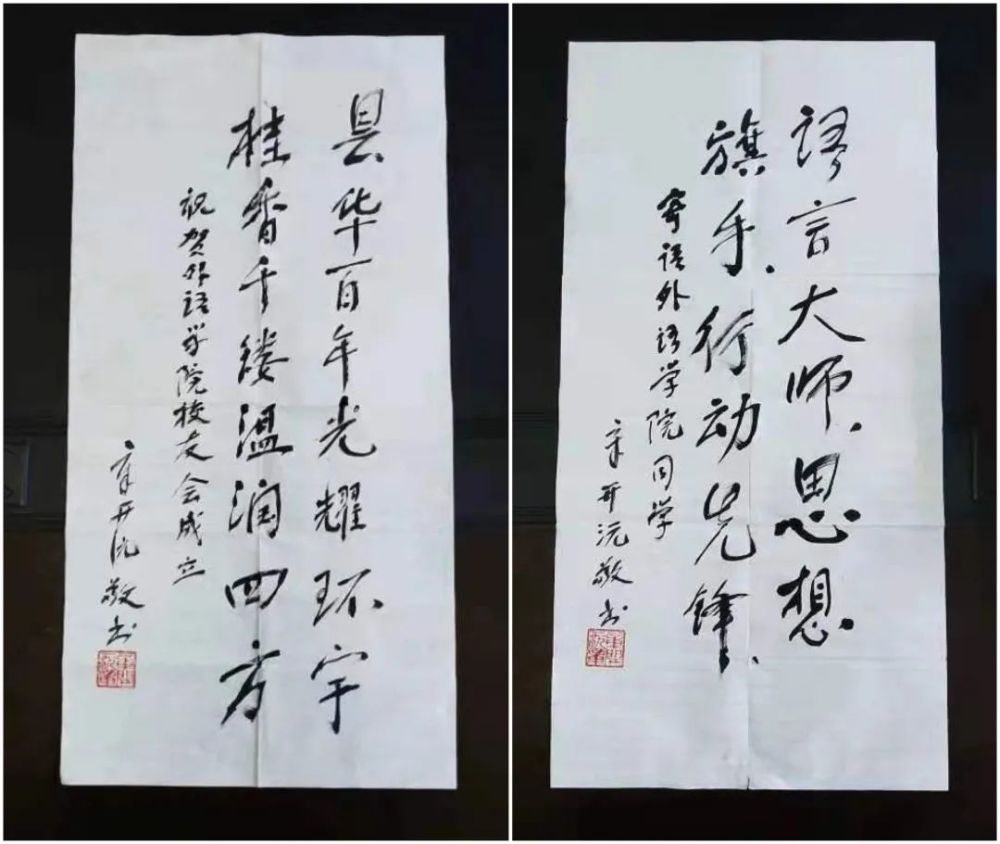 昙华百年光耀环宇
桂香千缕温润四方
祝贺外语学院校友会成立
章开沅敬书
语言大师、思想
旗手、行动先锋、
寄语外语学院同学
章开沅敬书